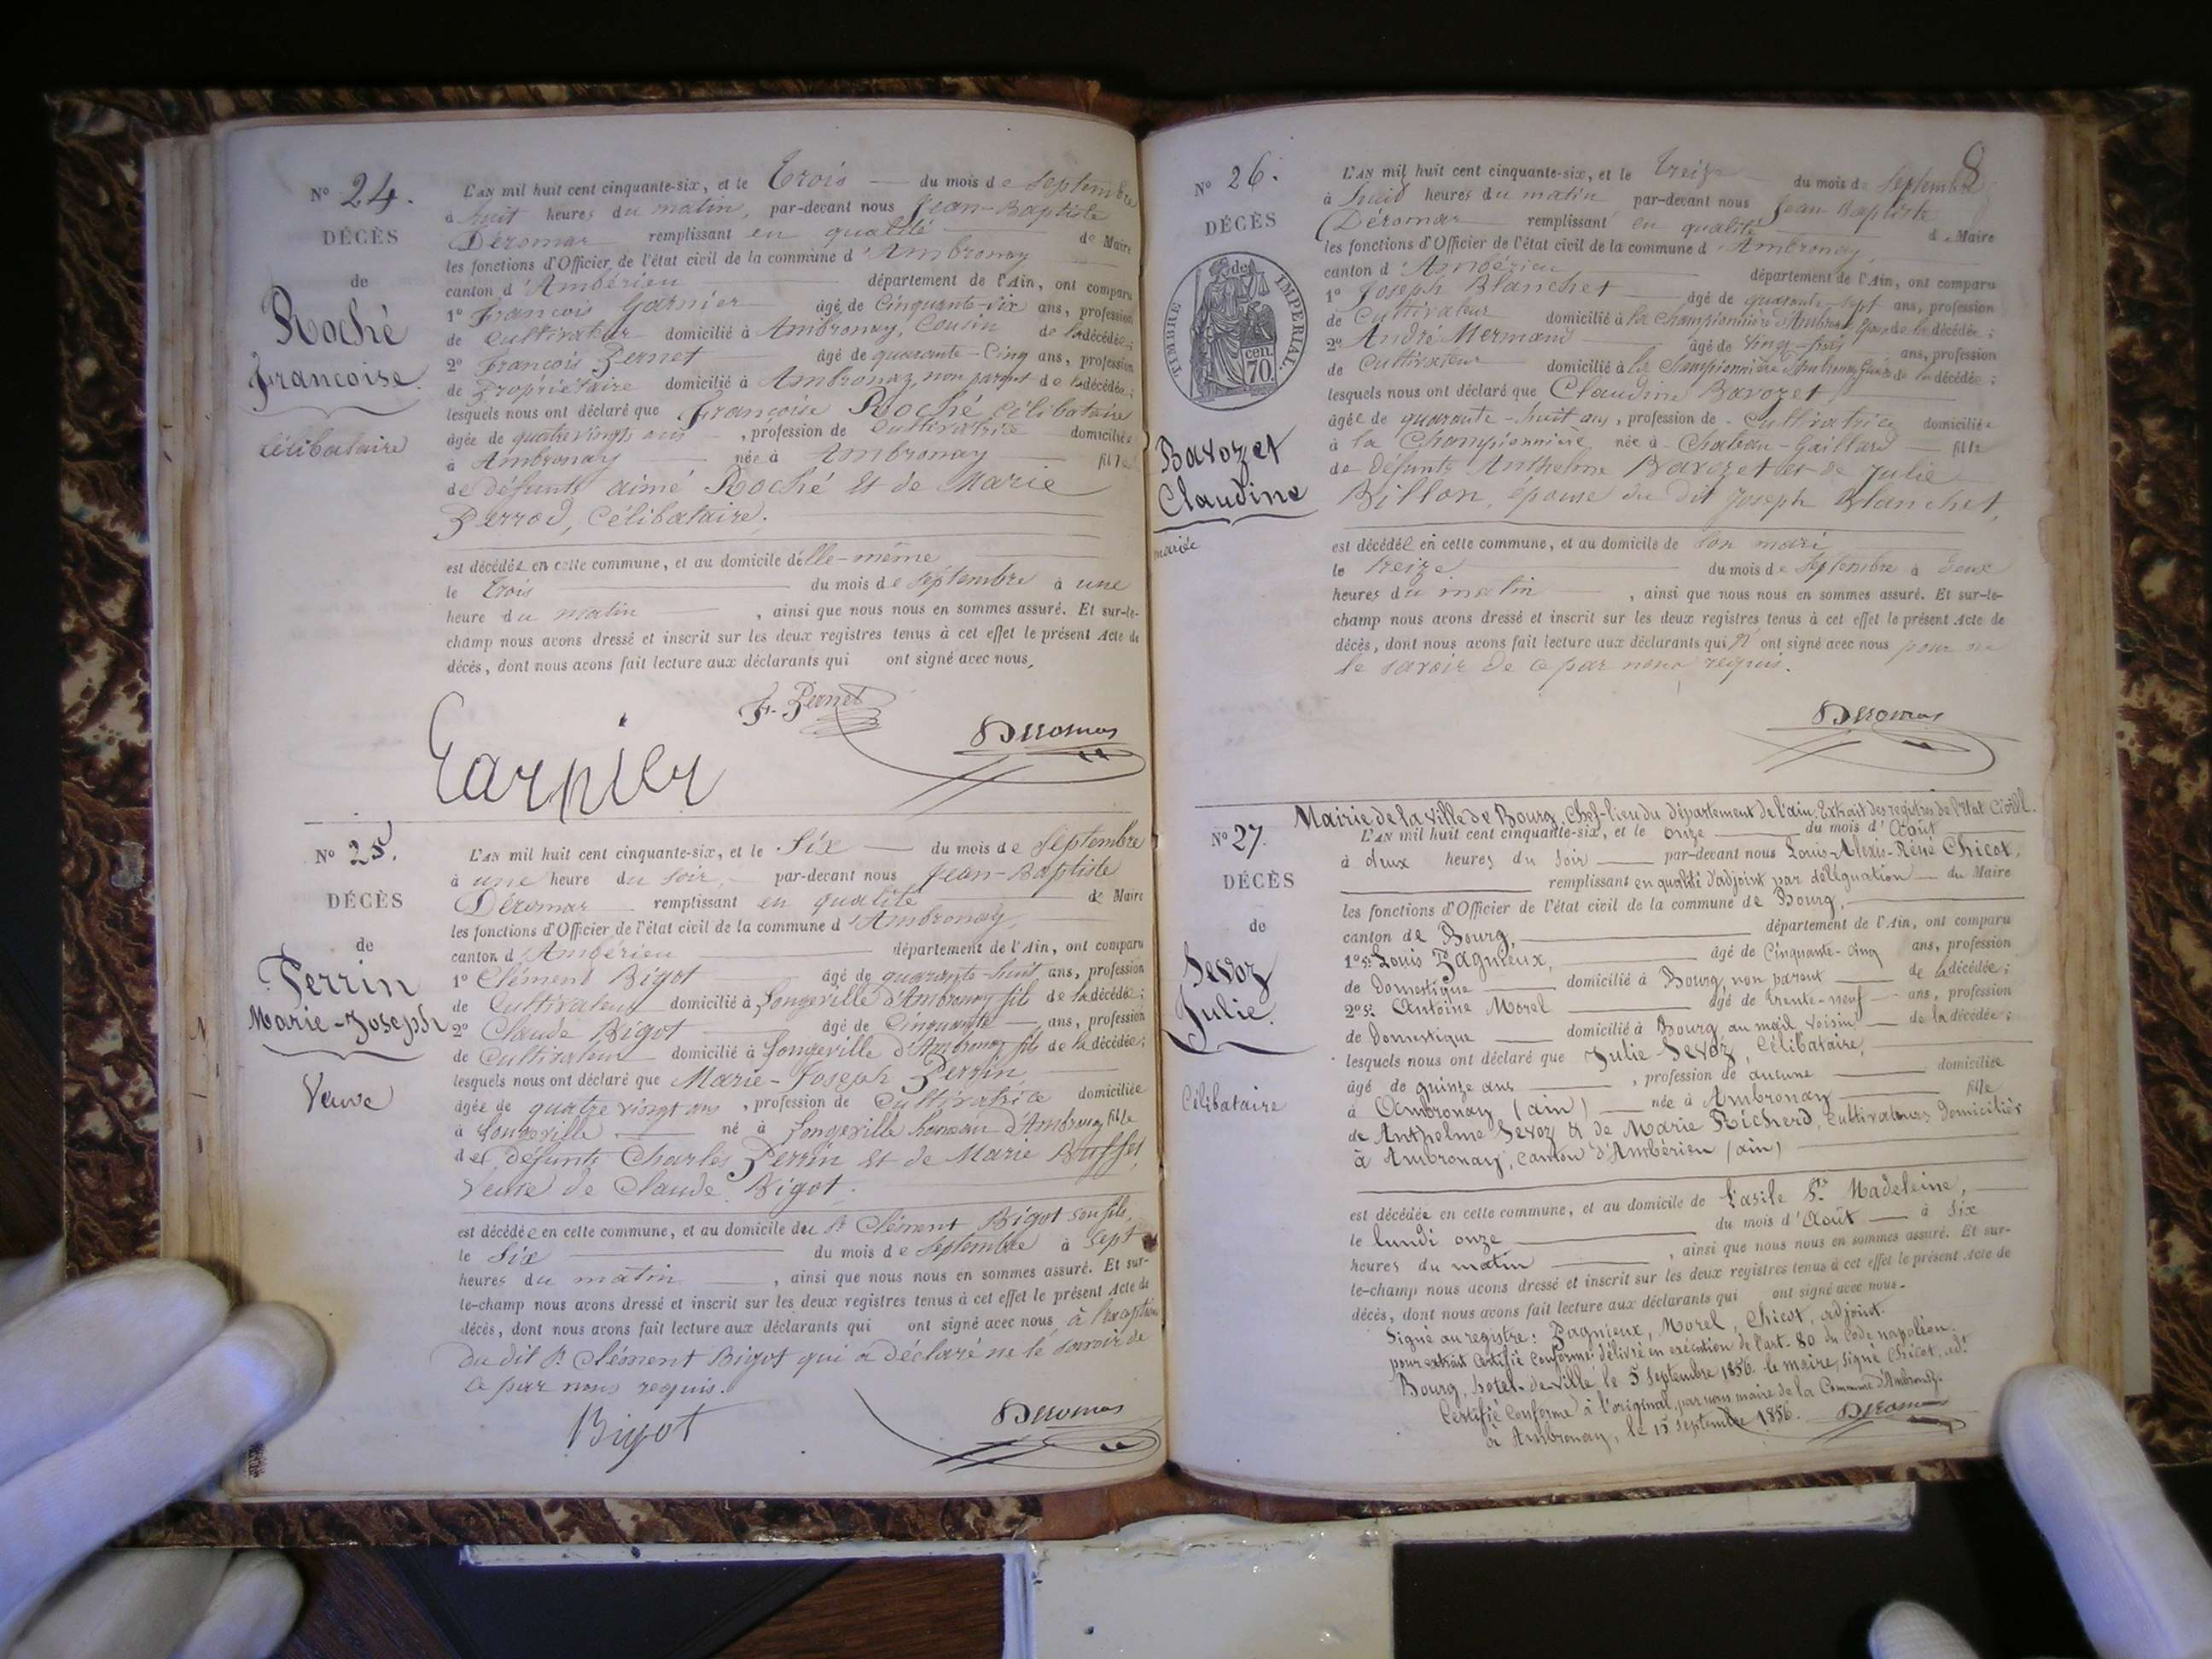 N° 24.
DÉCÈS
de
Roché
Françoise.
Célibataire
L'AN mil huit cent cinquante-six, et le Trois du mois de Septembre
à huit heures du matin, par-devant nous Jean-Baptiste
Déromas remplissant en qualité de Maire
les fonctions d'Officier de l'état civil de la commune d'Ambronay
canton d'Ambérieu département de l'Ain, ont comparu
1° François Garnier âgé de Cinquante-six ans, profession
de Cultivateur domicilié à Ambronay, Cousin de la décédée;
2° François Pernet âgé de quarante-Cinq ans, profession
de Propriétaire domicilié à Ambronay, non parent de la décédée;
lesquels nous ont déclaré que Françoise Roché Célibataire
âgée de quatre vingts ans, profession de Cultivatrice domiciliée
à Ambronay née à Ambronay fille
de défunts aimé Roché et de Marie
Perrod, Célibataire.
est décédée en cette commune, et au domicile d'elle-même
le Trois du mois de Septembre à une
heure du matin, ainsi que nous nous en sommes assuré. Et sur-le-
champ nous avons dressé et inscrit sur les deux registres tenus à cet effet le présent Acte de
décès, dont nous avons fait lecture aux déclarants qui ont signé avec nous.
F. Pernet
Garnier
Deromas
N° 25.
DÉCÈS
de
Perrin
Marie-Joseph
Veuve
L'AN mil huit cent cinquante-six, et le Six du mois de Septembre
à une heure du soir, par-devant nous Jean-Baptiste
Déromas remplissant en qualité de Maire
les fonctions d'Officier de l'état civil de la commune d'Ambronay,
canton d'Ambérieu département de l'Ain, ont comparu
1° Clément Bigot âgé de quarante-huit ans, profession
de Cultivateur domicilié à Longeville d'Ambronay fils de la décédée;
2° Claude Bigot âgé de Cinquante ans, profession
de Cultivateur domicilié à Longeville d'Ambronay fils de la décédée;
lesquels nous ont déclaré que Marie-Joseph Perrin,
âgée de quatre vingt ans, profession de Cultivatrice domiciliée
à Longeville né à Longeville hameau d'Ambronay fille
des défunts Charles Perrin et de Marie Buffet,
Veuve de Claude Bigot.
est décédée en cette commune, et au domicile du Sr Clément Bigot son fils,
le Six du mois de Septembre à Sept
heures du matin, ainsi que nous nous en sommes assuré. Et sur-
le-champ nous avons dressé et inscrit sur les deux registres tenus à cet effet le présent Acte de
décès, dont nous avons fait lecture aux déclarants qui ont signé avec nous, à l'exception
du dit Sr Clément Bigot qui a déclaré ne le savoir de
ce par nous requis.
Bigot
Deromas
8
N° 26.
DÉCÈS
de
TIMBRE IMPÉRIAL.
70 cen.
Bavozet
Claudine
mariée
L'AN mil huit cent cinquante-six, et le treize du mois de Septembre
à huit heures du matin par-devant nous Jean-Baptiste
Déromas remplissant en qualité de Maire
les fonctions d'Officier de l'état civil de la commune d'Ambronay,
canton d'Ambérieu département de l'Ain, ont comparu
1° Joseph Blanchet âgé de quarante-sept ans, profession
de Cultivateur domicilié à la Championnière d'Ambronay époux de la décédée;
2° André Mermand âgé de ving-trois ans, profession
de Cultivateur domicilié à la Championnière d'Ambronay de la décédée;
lesquels nous ont déclaré que Claudine Bavozet,
âgée de quarante-huit ans, profession de Cultivatrice domiciliée
à la Championnière née à Chateau-Gaillard fille
de défunts Anthelme Bavozet et de Julie
Billon, épouse du dit Joseph Blanchet,
est décédée en cette commune, et au domicile de son mari
le treize du mois de Septembre à deux
heures du matin, ainsi que nous nous en sommes assuré. Et sur-le-
champ nous avons dressé et inscrit sur les deux registres tenus à cet effet le présent Acte de
décès, dont nous avons fait lecture aux déclarants qui n'ont signé avec nous pour ne
le savoir de ce par nous requis.
Deromas
Mairie de la ville de Bourg, Chef-lieu du département de l'ain. Extrait des registres de l'Etat Civil.
N° 27.
DÉCÈS
de
Sevoz
Julie.
Célibataire
L'AN mil huit cent cinquante-six, et le onze du mois d'Août
à deux heures du soir par-devant nous Louis-Alexis-Réné Chicot,
remplissant en qualité d'adjoint par délégation du Maire
les fonctions d'Officier de l'état civil de la commune de Bourg,
canton de Bourg, département de l'Ain, ont comparu
1° Sr Louis Pagnieux, âgé de Cinquante-cinq ans, profession
de Domestique domicilié à Bourg, non parent de la décédée;
2° Sr Antoine Morel âgé de trente-neuf ans, profession
de Domestique domicilié à Bourg, au mail, Voisin de la décédée;
lesquels nous ont déclaré que Julie Sevoz, Célibataire,
âgé de quinze ans, profession de aucune domiciliée
à Ambronay (ain) née à Ambronay fille
de Anthelme Sevoz & de Marie Richerd, cultivateurs, domiciliés
à Ambronay, canton d'Ambérieu (ain)
est décédée en cette commune, et au domicile de L'asile Ste Madeleine,
le lundi onze du mois d'Août à Six
heures du matin, ainsi que nous nous en sommes assuré. Et sur-
le-champ nous avons dressé et inscrit sur les deux registres tenus à cet effet le présent Acte de
décès, dont nous avons fait lecture aux déclarants qui ont signé avec nous.
Signé au registre: Pagnieux, Morel, Chicot, adjoint.
pour extrait certifié conforme délivré en exécution de l'art. 80 du Code napoléon.
Bourg, hotel-de-ville le 5 Septembre 1856. le maire, signé Chicot, adt
Certifié Conforme à l'original, par nous maire de la Commune d'Ambronay.
à Ambronay, le 15 Septembre 1856. Deromas